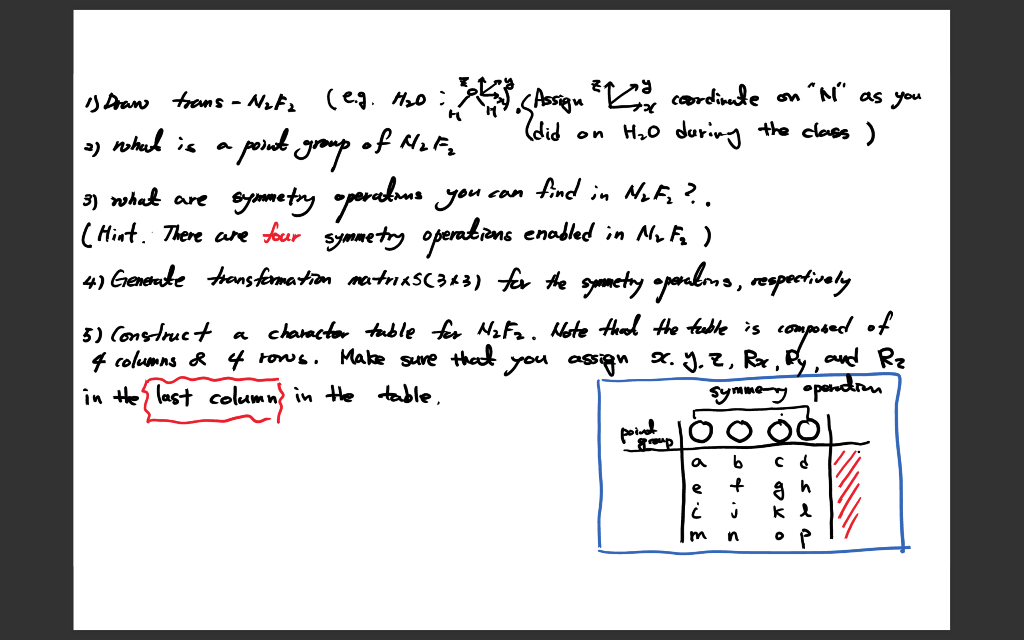 1) Draw trans-N2F2 (e.g. H2O : z y x H H). (Assign z y x coordinate on "N" as you
did on H2O during the class )
2) what is a point group of N2F2
3) what are symmetry operations you can find in N2F2?.
(Hint. There are four symmetry operations enabled in N2F2 )
4) Generate transformation matrixs(3x3) for the symmetry operations, respectively
5) Construct a character table for N2F2. Note that the table is composed of
4 columns & 4 rows. Make sure that you assign x. y. z, Rx, Ry, and Rz
in the last column in the table.
symmetry operation
point group
a b c d
e f g h
i j k l
m n o p